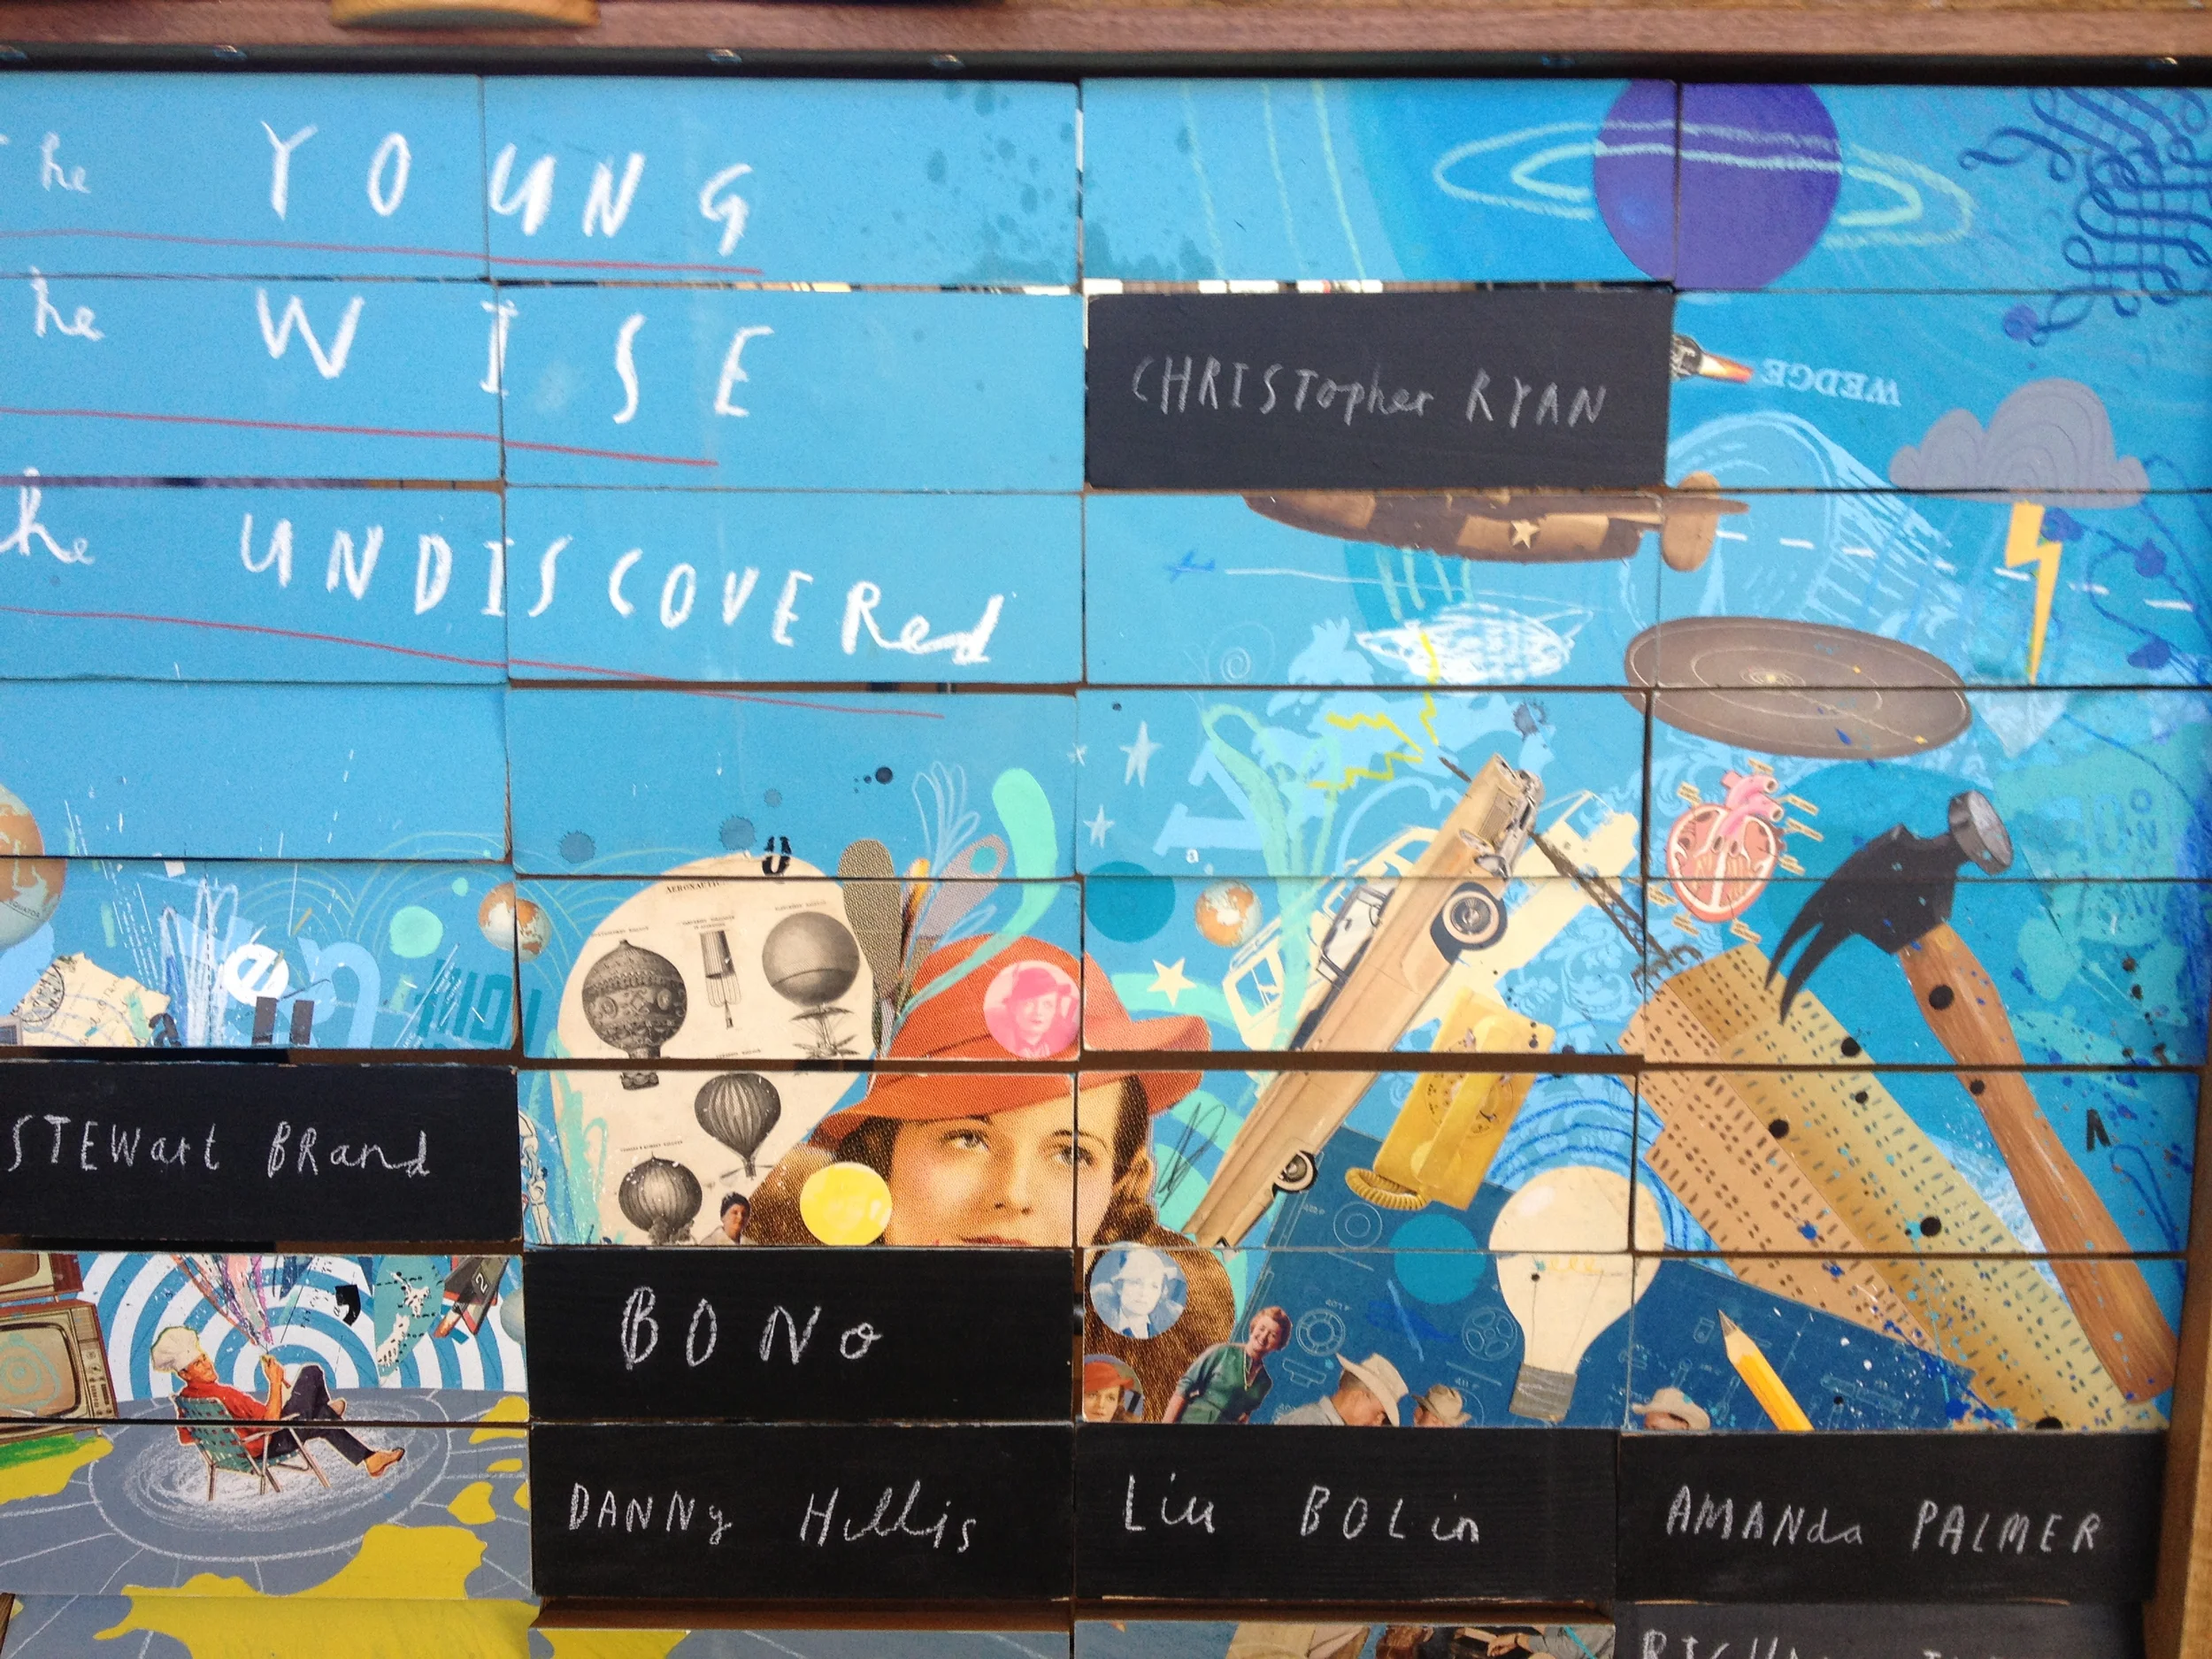 The YOUNG
he WISE
he UNDISCOVERed
CHRISTopher RYAN
WEDGE
AERONAUTIC
EQUATOR
en
STEWart BRand
BONo
DANNy Hillis
Liu BOLin
AMANda PALMER